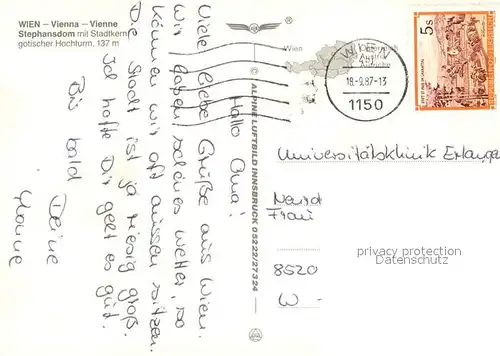 WIEN – Vienna – Vienne
Stephansdom mit Stadtkern
gotischer Hochturm. 137 m
Hallo Oma!
Viele liebe Grüße aus Wien.
Wir haben schönes Wetter, so
können wir oft aussen sitzen.
Die Stadt ist ja riesig groß.
Ich hoffe Dir geht es gut.
Bis bald
Deine
© ALPINE LUFTBILD INNSBRUCK 05222/27324
Wien
Österreich
Austria
Autriche
WIEN
18.-9.87-13
1150
5s
Universitätsklinik Erlangen
Frau
8520
W-
privacy protection
Datenschutz